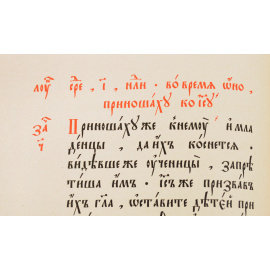 лоу҃ срее҃, і҃, нлѝ · во время ѻ҆но,
приношаху ко і҆с҃у
за҃ Приношаху же кнемоу̀ и҆ мла
і҃ денцы, да и҆́хъ коснется ·
видѣвше же оу҆ченицы̀, запрѣ
тиша и҆мъ · І҆с҃ъ же призвавъ
и҆́хъ гл҃а, ѡ҆ставите дѣтей при